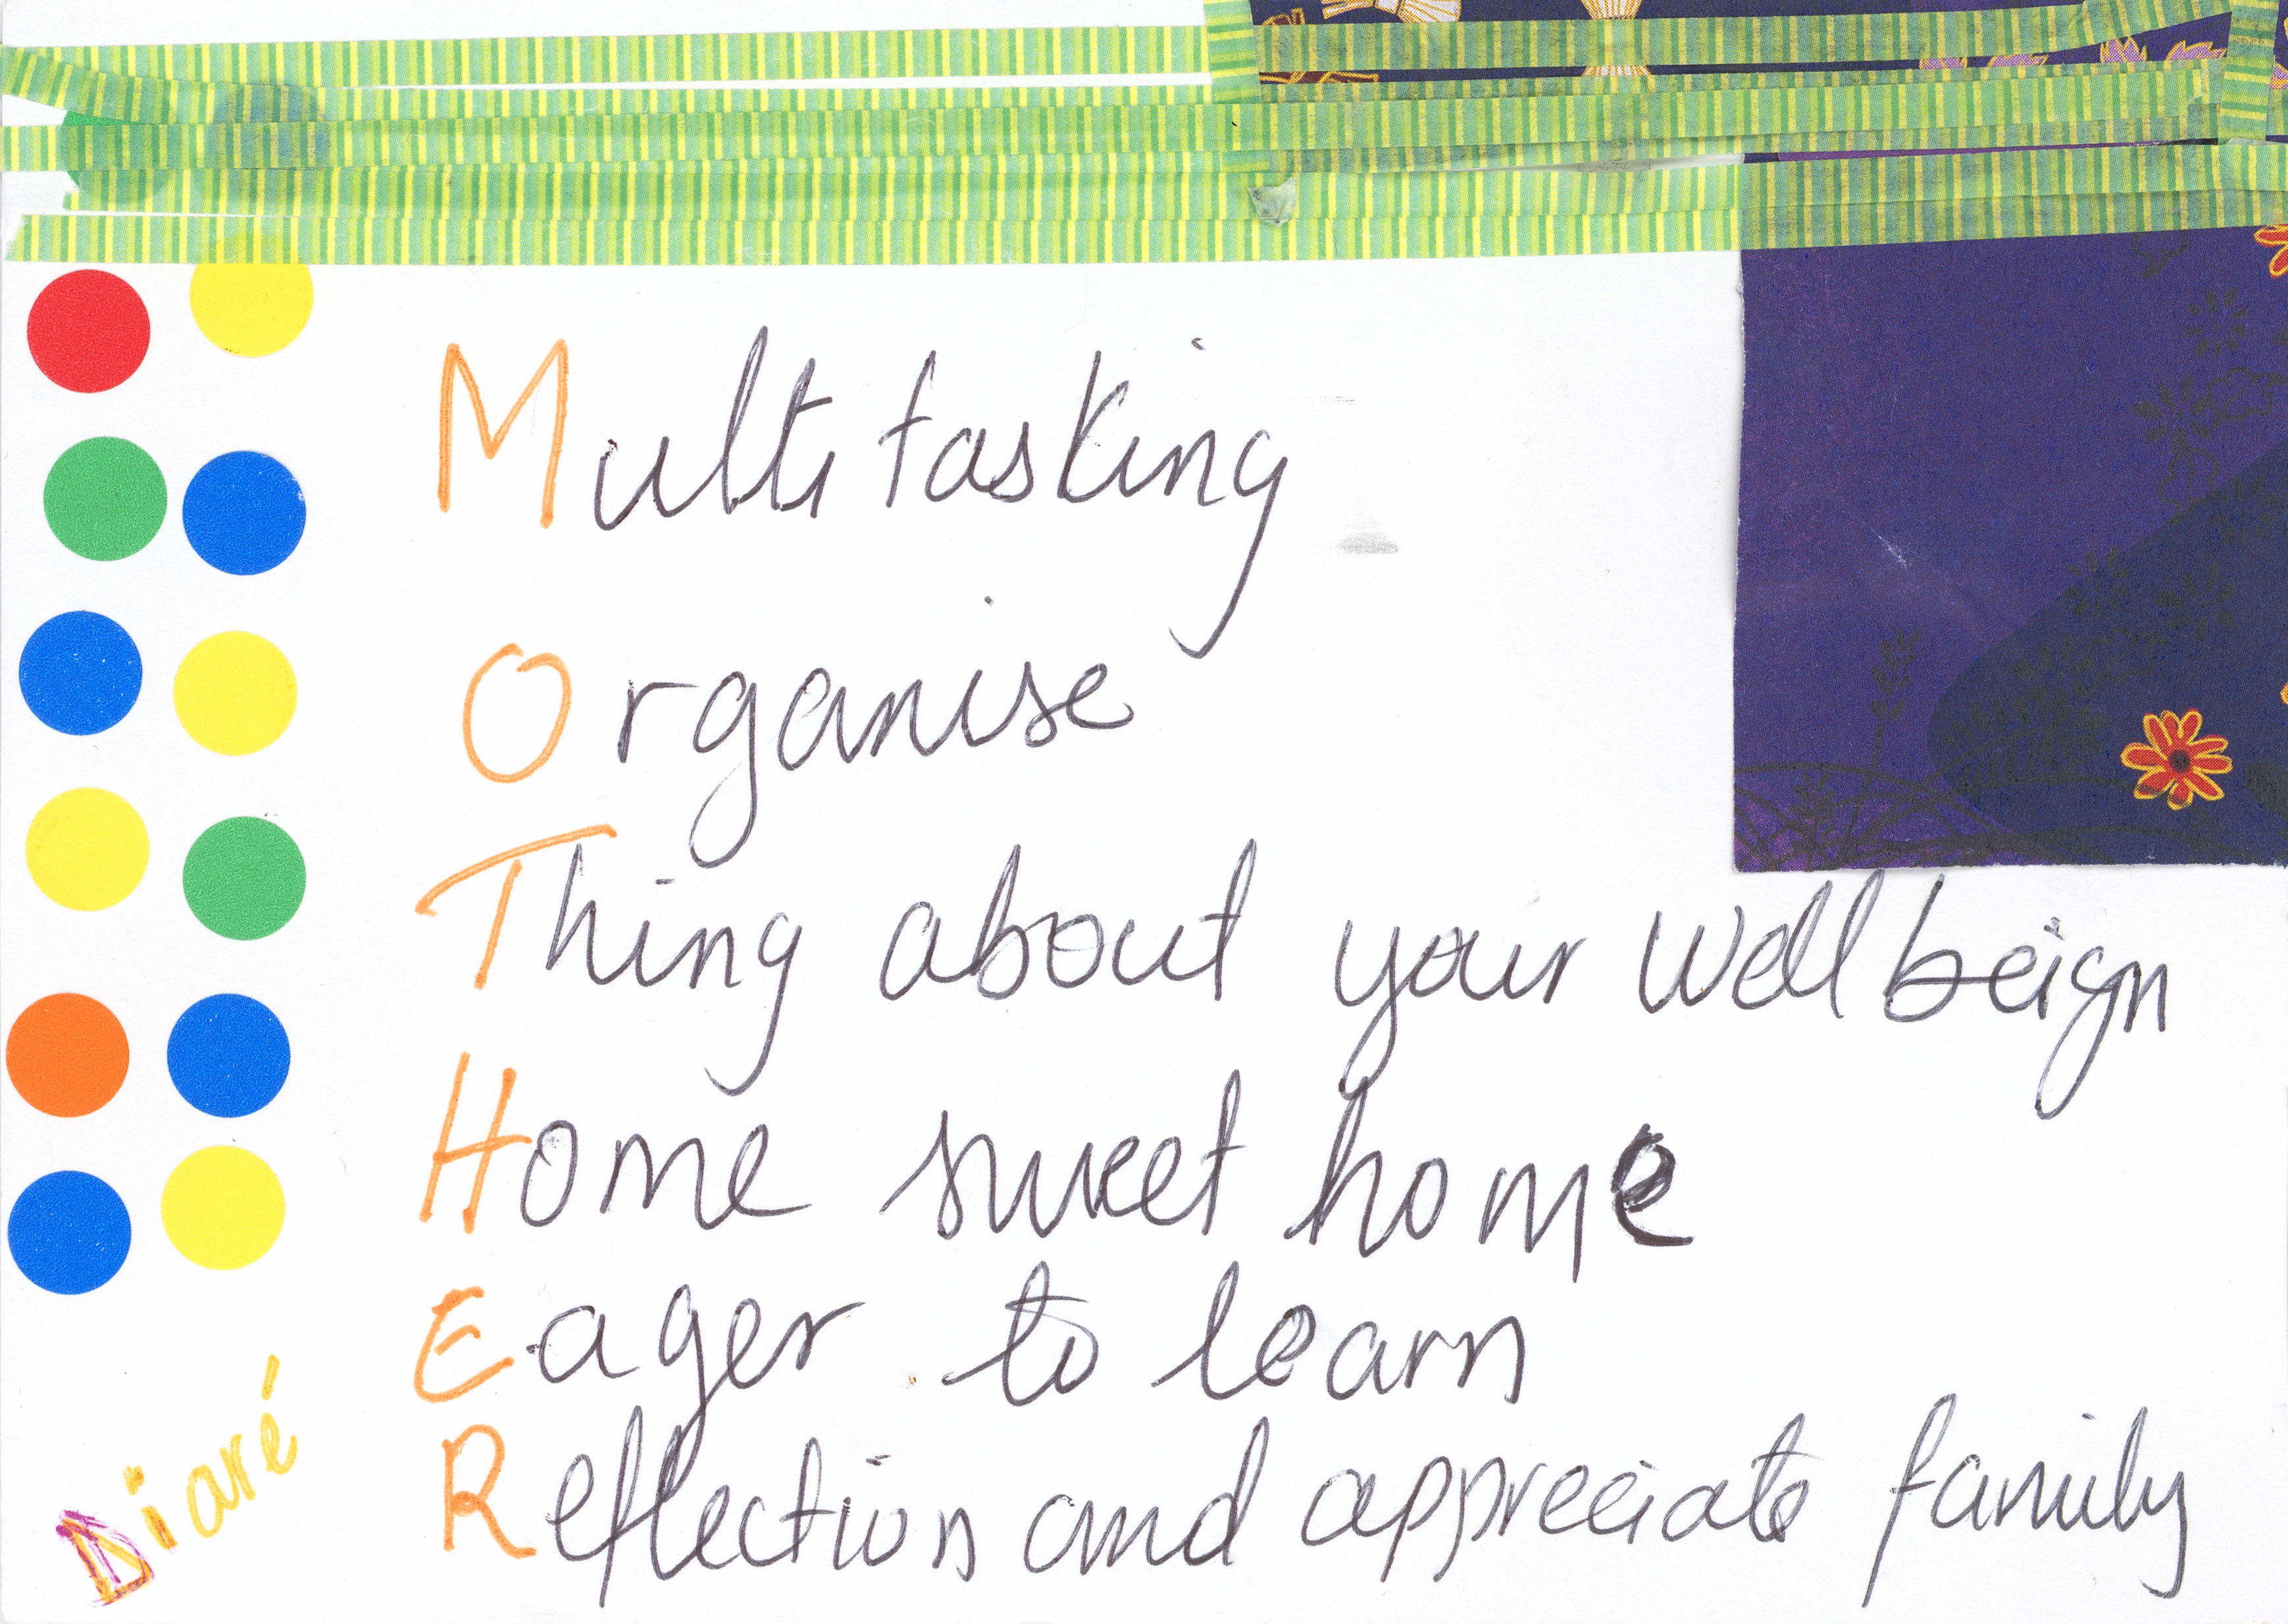 Multi tasking
Organise
Thing about your well beign
Home sweet home
Eager to learn
Reflection and appreciate family
Diaré